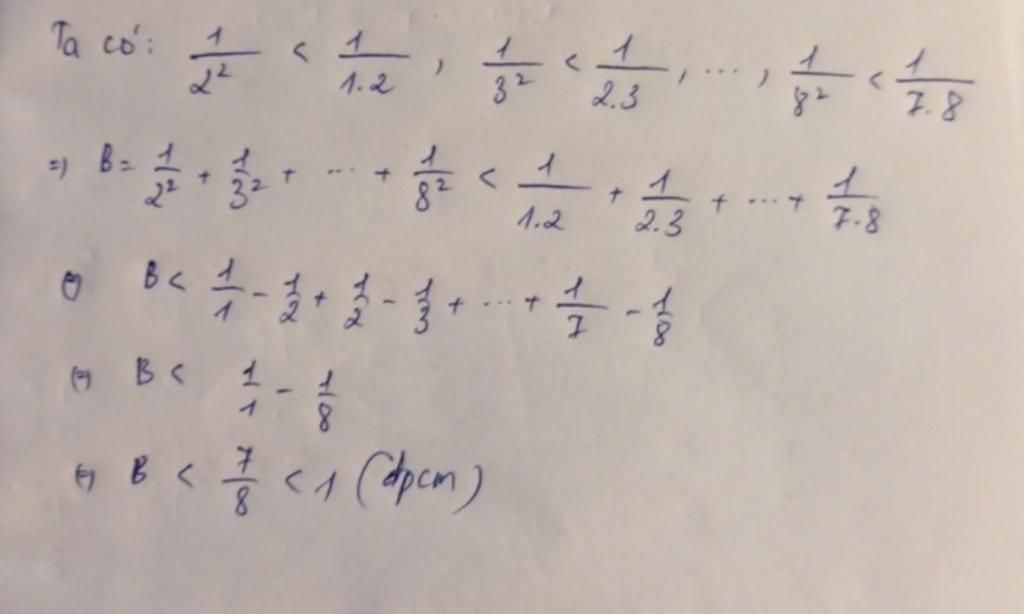 Ta có: 1/2² < 1/1.2 , 1/3² < 1/2.3 , ... , 1/8² < 1/7.8
=> B = 1/2² + 1/3² + ... + 1/8² < 1/1.2 + 1/2.3 + ... + 1/7.8
(=) B < 1/1 - 1/2 + 1/2 - 1/3 + ... + 1/7 - 1/8
(=) B < 1/1 - 1/8
(=) B < 7/8 < 1 (đpcm)